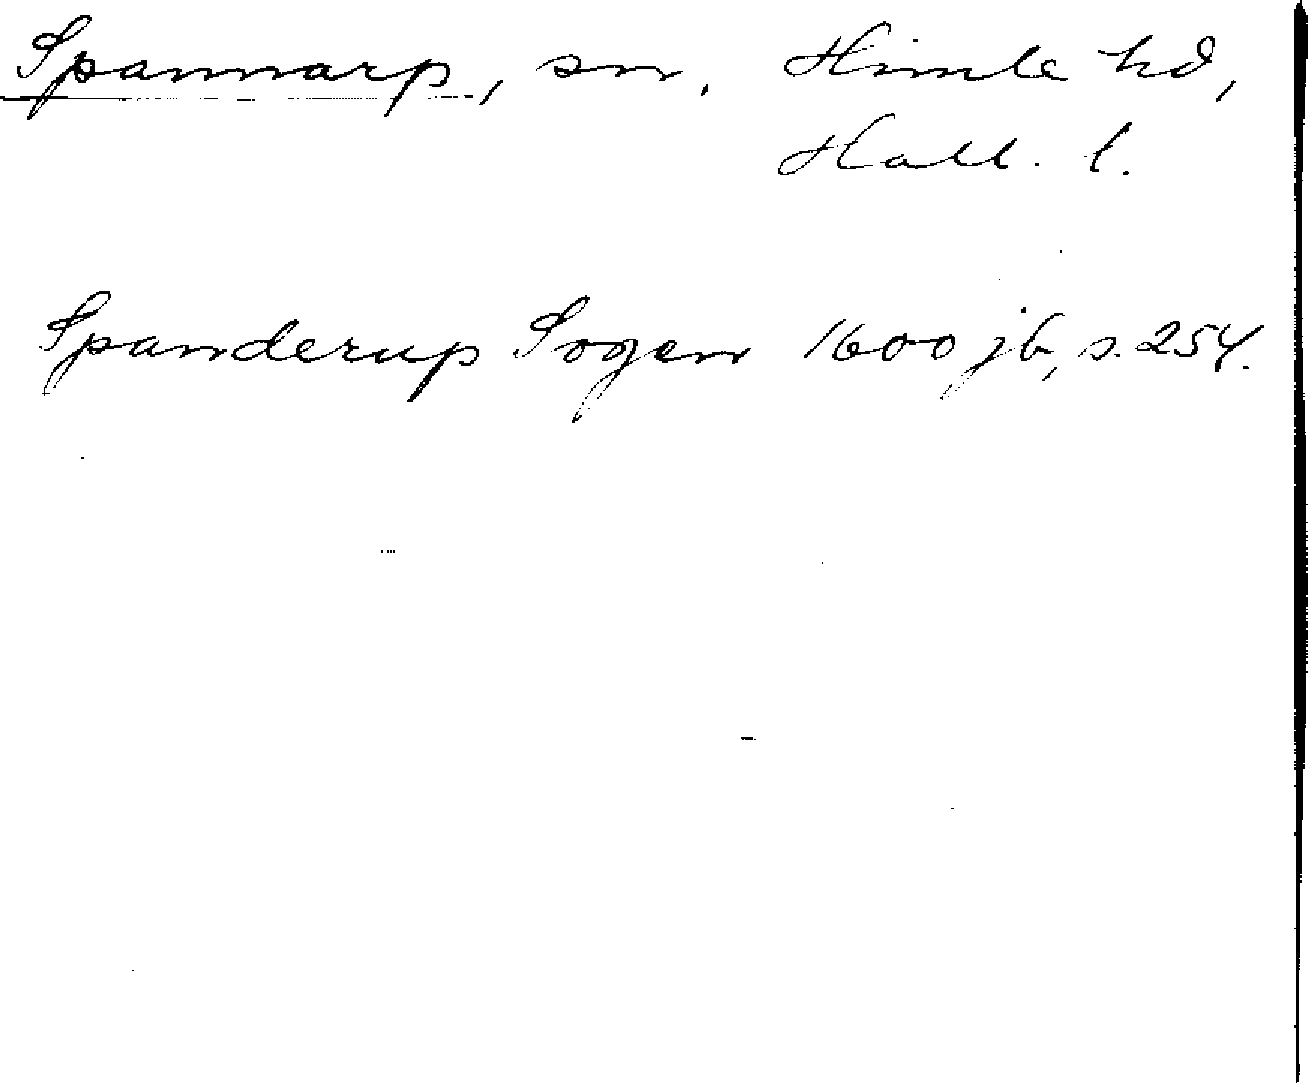 Spannarp, sn, Himle hd,
Hall. l.
Spanderup Sogen 1600 jb, s. 254.